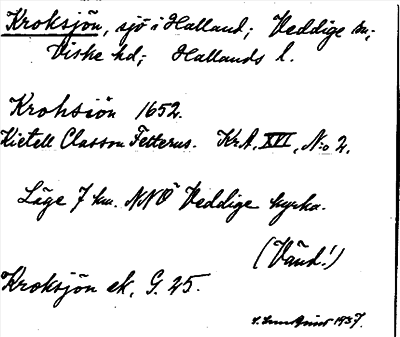 Kroksjön, sjö i Halland; Veddige sn;
Viske hd; Hallands l.
Krohsiön 1652.
Kietell Classon Felterus. KrA, XVI, N:o 2.
Läge 7 km. NNÖ Veddige kyrka.
(Vänd!)
Kroksjön ek. G. 25.
1937.